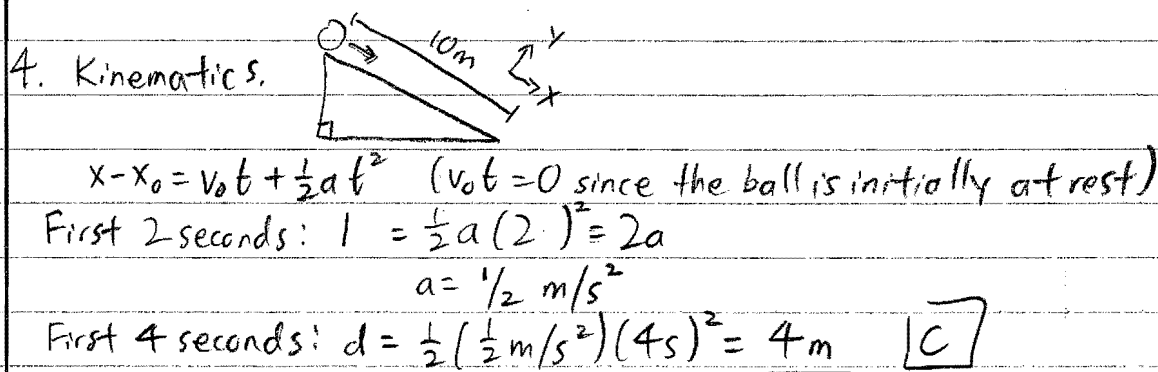 10m
Y
4. Kinematics.
X
x-x₀ = v₀t + ½at² (v₀t = 0 since the ball is initially at rest)
First 2 seconds: 1 = ½a(2 )² = 2a
a = 1/2 m/s²
First 4 seconds: d = ½(½m/s²)(4s)² = 4m C